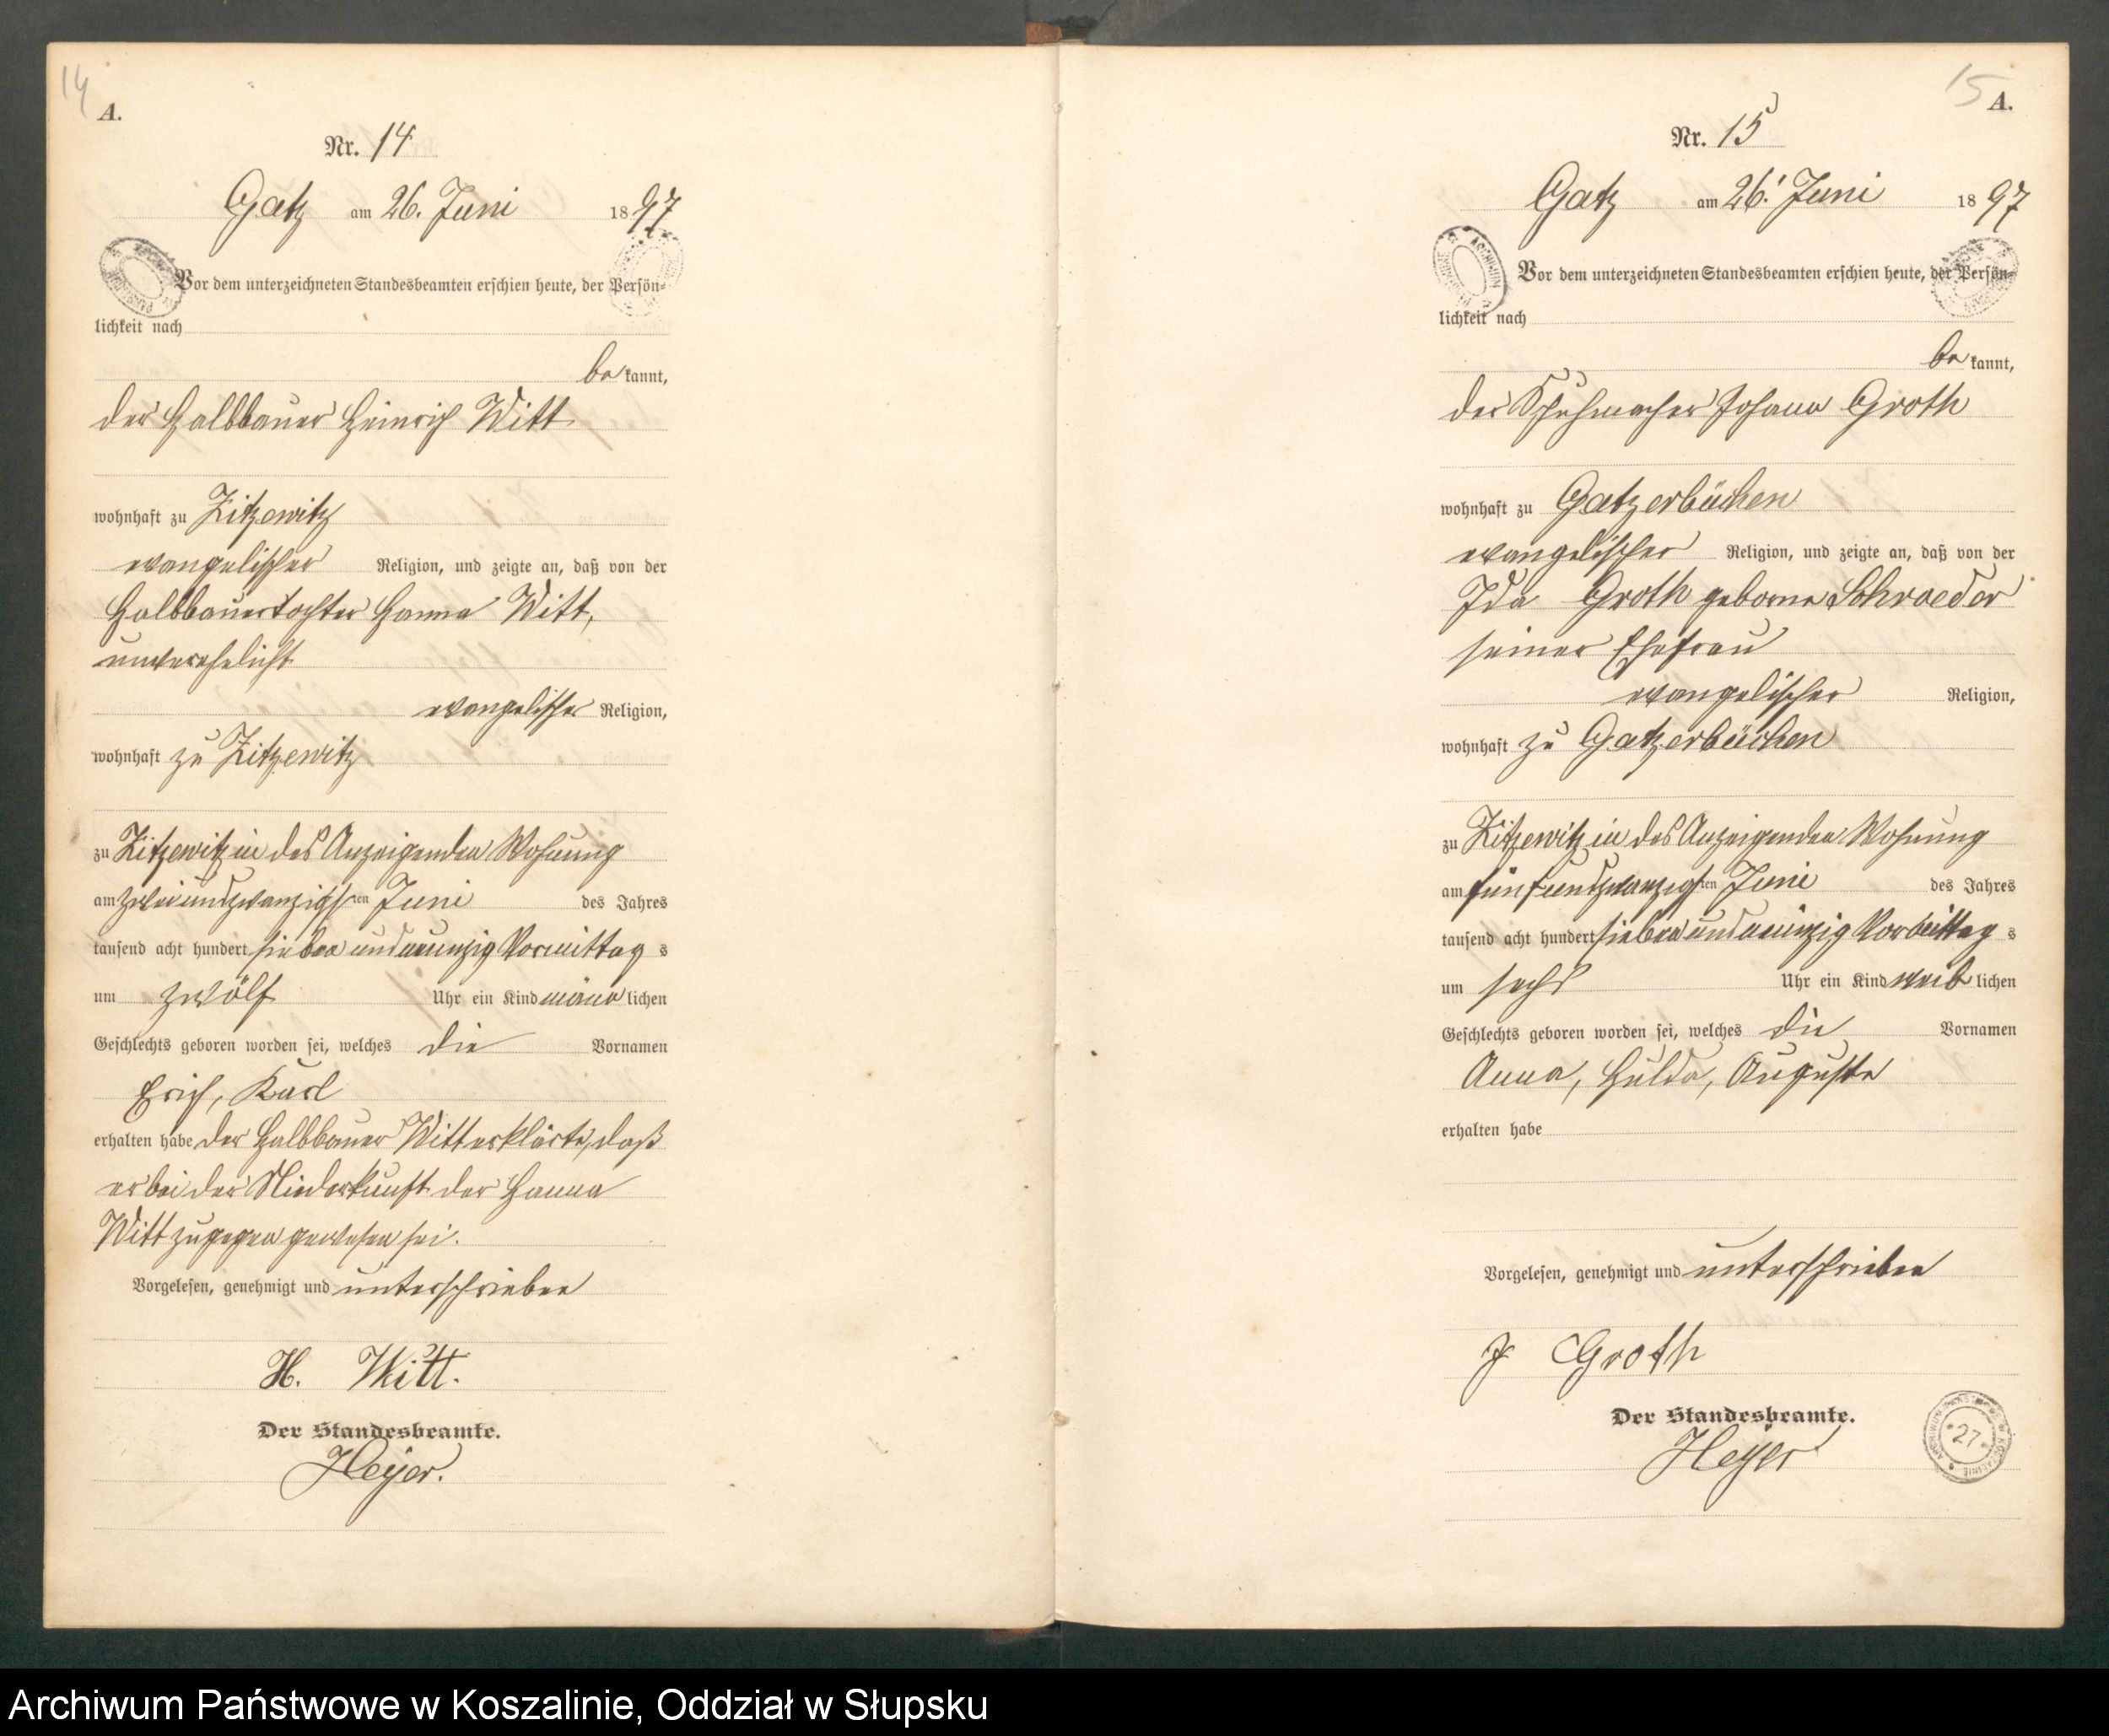 14
A.
Nr. 14
Gatz am 26. Juni 1897
Vor dem unterzeichneten Standesbeamten erschien heute, der Persön-
lichkeit nach
bekannt,
der Halbbauer Heinrich Witt
wohnhaft zu Zitzewitz
evangelischer Religion, und zeigte an, daß von der
Halbbauertochter Hanna Witt,
unverehelicht
evangelischer Religion,
wohnhaft zu Zitzewitz
zu Zitzewitz in des Anzeigenden Wohnung
am zweiundzwanzigsten Juni des Jahres
tausend acht hundert sieben und neunzig Vormittags
um zwölf Uhr ein Kind männlichen
Geschlechts geboren worden sei, welches die Vornamen
Erich, Karl
erhalten habe der Halbbauer Witt erklärte, daß
er bei der Niederkunft der Hanna
Witt zugegen gewesen sei.
Vorgelesen, genehmigt und unterschrieben
H. Witt.
Der Standesbeamte.
Heyer.
15
A.
Nr. 15
Gatz am 26. Juni 1897
Vor dem unterzeichneten Standesbeamten erschien heute, der Persön-
lichkeit nach
bekannt,
der Schuhmacher Johann Groth
wohnhaft zu Gatzerbüchen
evangelischer Religion, und zeigte an, daß von der
Ida Groth geborne Schroeder
seiner Ehefrau
evangelischer Religion,
wohnhaft zu Gatzerbüchen
zu Zitzewitz in des Anzeigenden Wohnung
am fünfundzwanzigsten Juni des Jahres
tausend acht hundert sieben und neunzig Vormittags
um sechs Uhr ein Kind weiblichen
Geschlechts geboren worden sei, welches die Vornamen
Anna, Hulda, Auguste
erhalten habe
Vorgelesen, genehmigt und unterschrieben
J Groth
Der Standesbeamte.
Heyer
27
Archiwum Państwowe w Koszalinie, Oddział w Słupsku